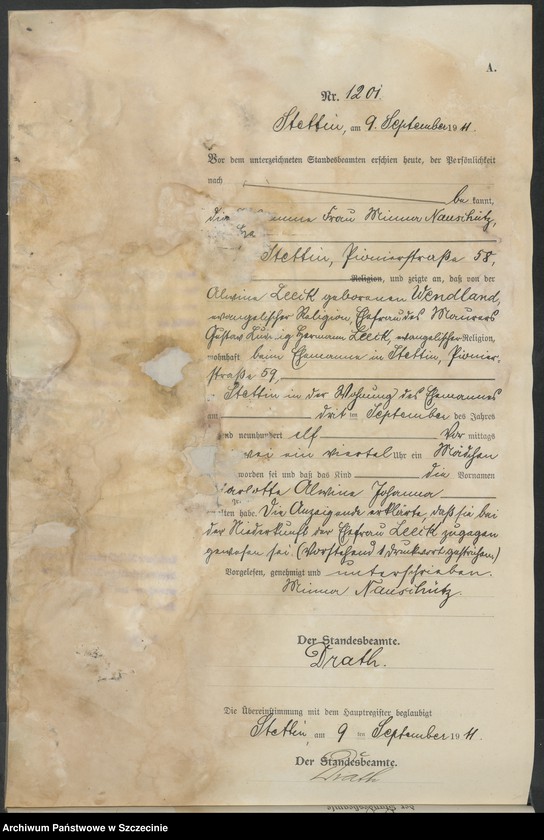 A.
Nr. 1201
Stettin, am 9. September 1911.
Vor dem unterzeichneten Standesbeamten erschien heute, der Persönlichkeit
nach
be kannt,
die Frau Minna Nauschütz,
Stettin, Pionierstraße 58,
Religion, und zeigte an, daß von der
Alwine Leeck geborenen Wendland,
evangelischer Religion, Ehefrau des Maurers
Gustav Hermann Leeck, evangelischer Religion,
wohnhaft beim Ehemanne in Stettin, Pionier-
straße 59,
Stettin in der Wohnung des Ehemannes
am ten September des Jahres
neunhundert elf Vor mittags
ein viertel Uhr ein Mädchen
worden sei und daß das Kind die Vornamen
Alwine Johanna
habe. Die Anzeigende erklärte, daß sie bei
der Niederkunft der Ehefrau Leeck zugegen
gewesen sei. (Vorstehend 1 Druckwort gestrichen.)
Vorgelesen, genehmigt und unterschrieben.
Minna Nauschütz.
Der Standesbeamte.
Drath.
Die Übereinstimmung mit dem Hauptregister beglaubigt
Stettin, am 9 ten September 1911.
Der Standesbeamte.
Drath
Der Standesbeamte
Archiwum Państwowe w Szczecinie